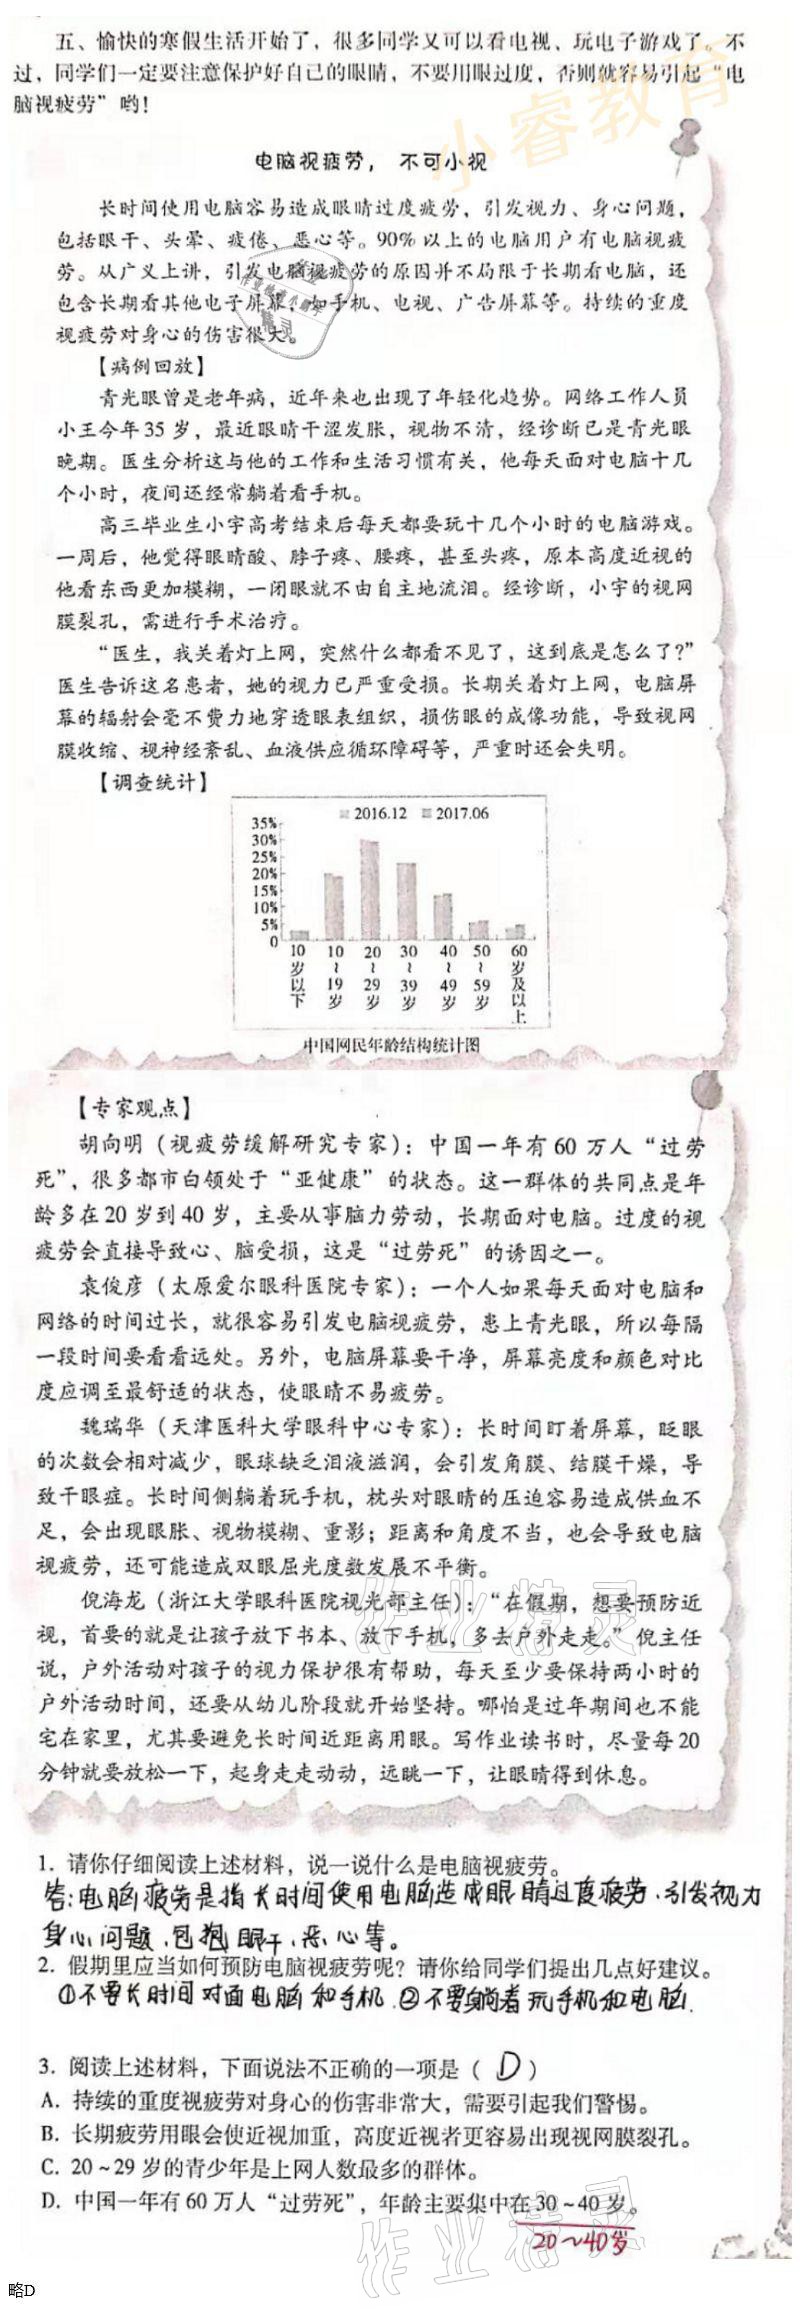 五、愉快的寒假生活开始了，很多同学又可以看电视、玩电子游戏了。不
过，同学们一定要注意保护好自己的眼睛，不要用眼过度，否则就容易引起“电
脑视疲劳”哟！
小睿教育
电脑视疲劳，不可小视
长时间使用电脑容易造成眼睛过度疲劳，引发视力、身心问题，
包括眼干、头晕、疲倦、恶心等。90%以上的电脑用户有电脑视疲
劳。从广义上讲，引发电脑视疲劳的原因并不局限于长期看电脑，还
包含长期看其他电子屏幕，如手机、电视、广告屏幕等。持续的重度
视疲劳对身心的伤害很大。
【病例回放】
青光眼曾是老年病，近年来也出现了年轻化趋势。网络工作人员
小王今年35岁，最近眼睛干涩发胀，视物不清，经诊断已是青光眼
晚期。医生分析这与他的工作和生活习惯有关，他每天面对电脑十几
个小时，夜间还经常躺着看手机。
高三毕业生小宇高考结束后每天都要玩十几个小时的电脑游戏。
一周后，他觉得眼睛酸、脖子疼、腰疼，甚至头疼，原本高度近视的
他看东西更加模糊，一闭眼就不由自主地流泪。经诊断，小宇的视网
膜裂孔，需进行手术治疗。
“医生，我关着灯上网，突然什么都看不见了，这到底是怎么了？”
医生告诉这名患者，她的视力已严重受损。长期关着灯上网，电脑屏
幕的辐射会毫不费力地穿透眼表组织，损伤眼的成像功能，导致视网
膜收缩、视神经紊乱、血液供应循环障碍等，严重时还会失明。
【调查统计】
2016.12 2017.06
35%
30%
25%
20%
15%
10%
5%
0
10岁以下 10~19岁 20~29岁 30~39岁 40~49岁 50~59岁 60岁及以上
中国网民年龄结构统计图
【专家观点】
胡向明（视疲劳缓解研究专家）：中国一年有60万人“过劳
死”，很多都市白领处于“亚健康”的状态。这一群体的共同点是年
龄多在20岁到40岁，主要从事脑力劳动，长期面对电脑。过度的视
疲劳会直接导致心、脑受损，这是“过劳死”的诱因之一。
袁俊彦（太原爱尔眼科医院专家）：一个人如果每天面对电脑和
网络的时间过长，就很容易引发电脑视疲劳，患上青光眼，所以每隔
一段时间要看看远处。另外，电脑屏幕要干净，屏幕亮度和颜色对比
度应调至最舒适的状态，使眼睛不易疲劳。
魏瑞华（天津医科大学眼科中心专家）：长时间盯着屏幕，眨眼
的次数会相对减少，眼球缺乏泪液滋润，会引发角膜、结膜干燥，导
致干眼症。长时间侧躺着玩手机，枕头对眼睛的压迫容易造成供血不
足，会出现眼胀、视物模糊、重影；距离和角度不当，也会导致电脑
视疲劳，还可能造成双眼屈光度数发展不平衡。
倪海龙（浙江大学眼科医院视光部主任）：“在假期，想要预防近
视，首要的就是让孩子放下书本、放下手机，多去户外走走。”倪主任
说，户外活动对孩子的视力保护很有帮助，每天至少要保持两小时的
户外活动时间，还要从幼儿阶段就开始坚持。哪怕是过年期间也不能
宅在家里，尤其要避免长时间近距离用眼。写作业读书时，尽量每20
分钟就要放松一下，起身走走动动，远眺一下，让眼睛得到休息。
作业精灵
1. 请你仔细阅读上述材料，说一说什么是电脑视疲劳。
答:电脑疲劳是指长时间使用电脑造成眼睛过度疲劳、引发视力
身心问题、包抱眼干、恶心等。
2. 假期里应当如何预防电脑视疲劳呢？请你给同学们提出几点好建议。
①不要长时间对面电脑和手机.②不要躺着玩手机和电脑.
3. 阅读上述材料，下面说法不正确的一项是（ D ）
A. 持续的重度视疲劳对身心的伤害非常大，需要引起我们警惕。
B. 长期疲劳用眼会使近视加重，高度近视者更容易出现视网膜裂孔。
C. 20～29岁的青少年是上网人数最多的群体。
D. 中国一年有60万人“过劳死”，年龄主要集中在30～40岁。
20～40岁
作业精灵
略D